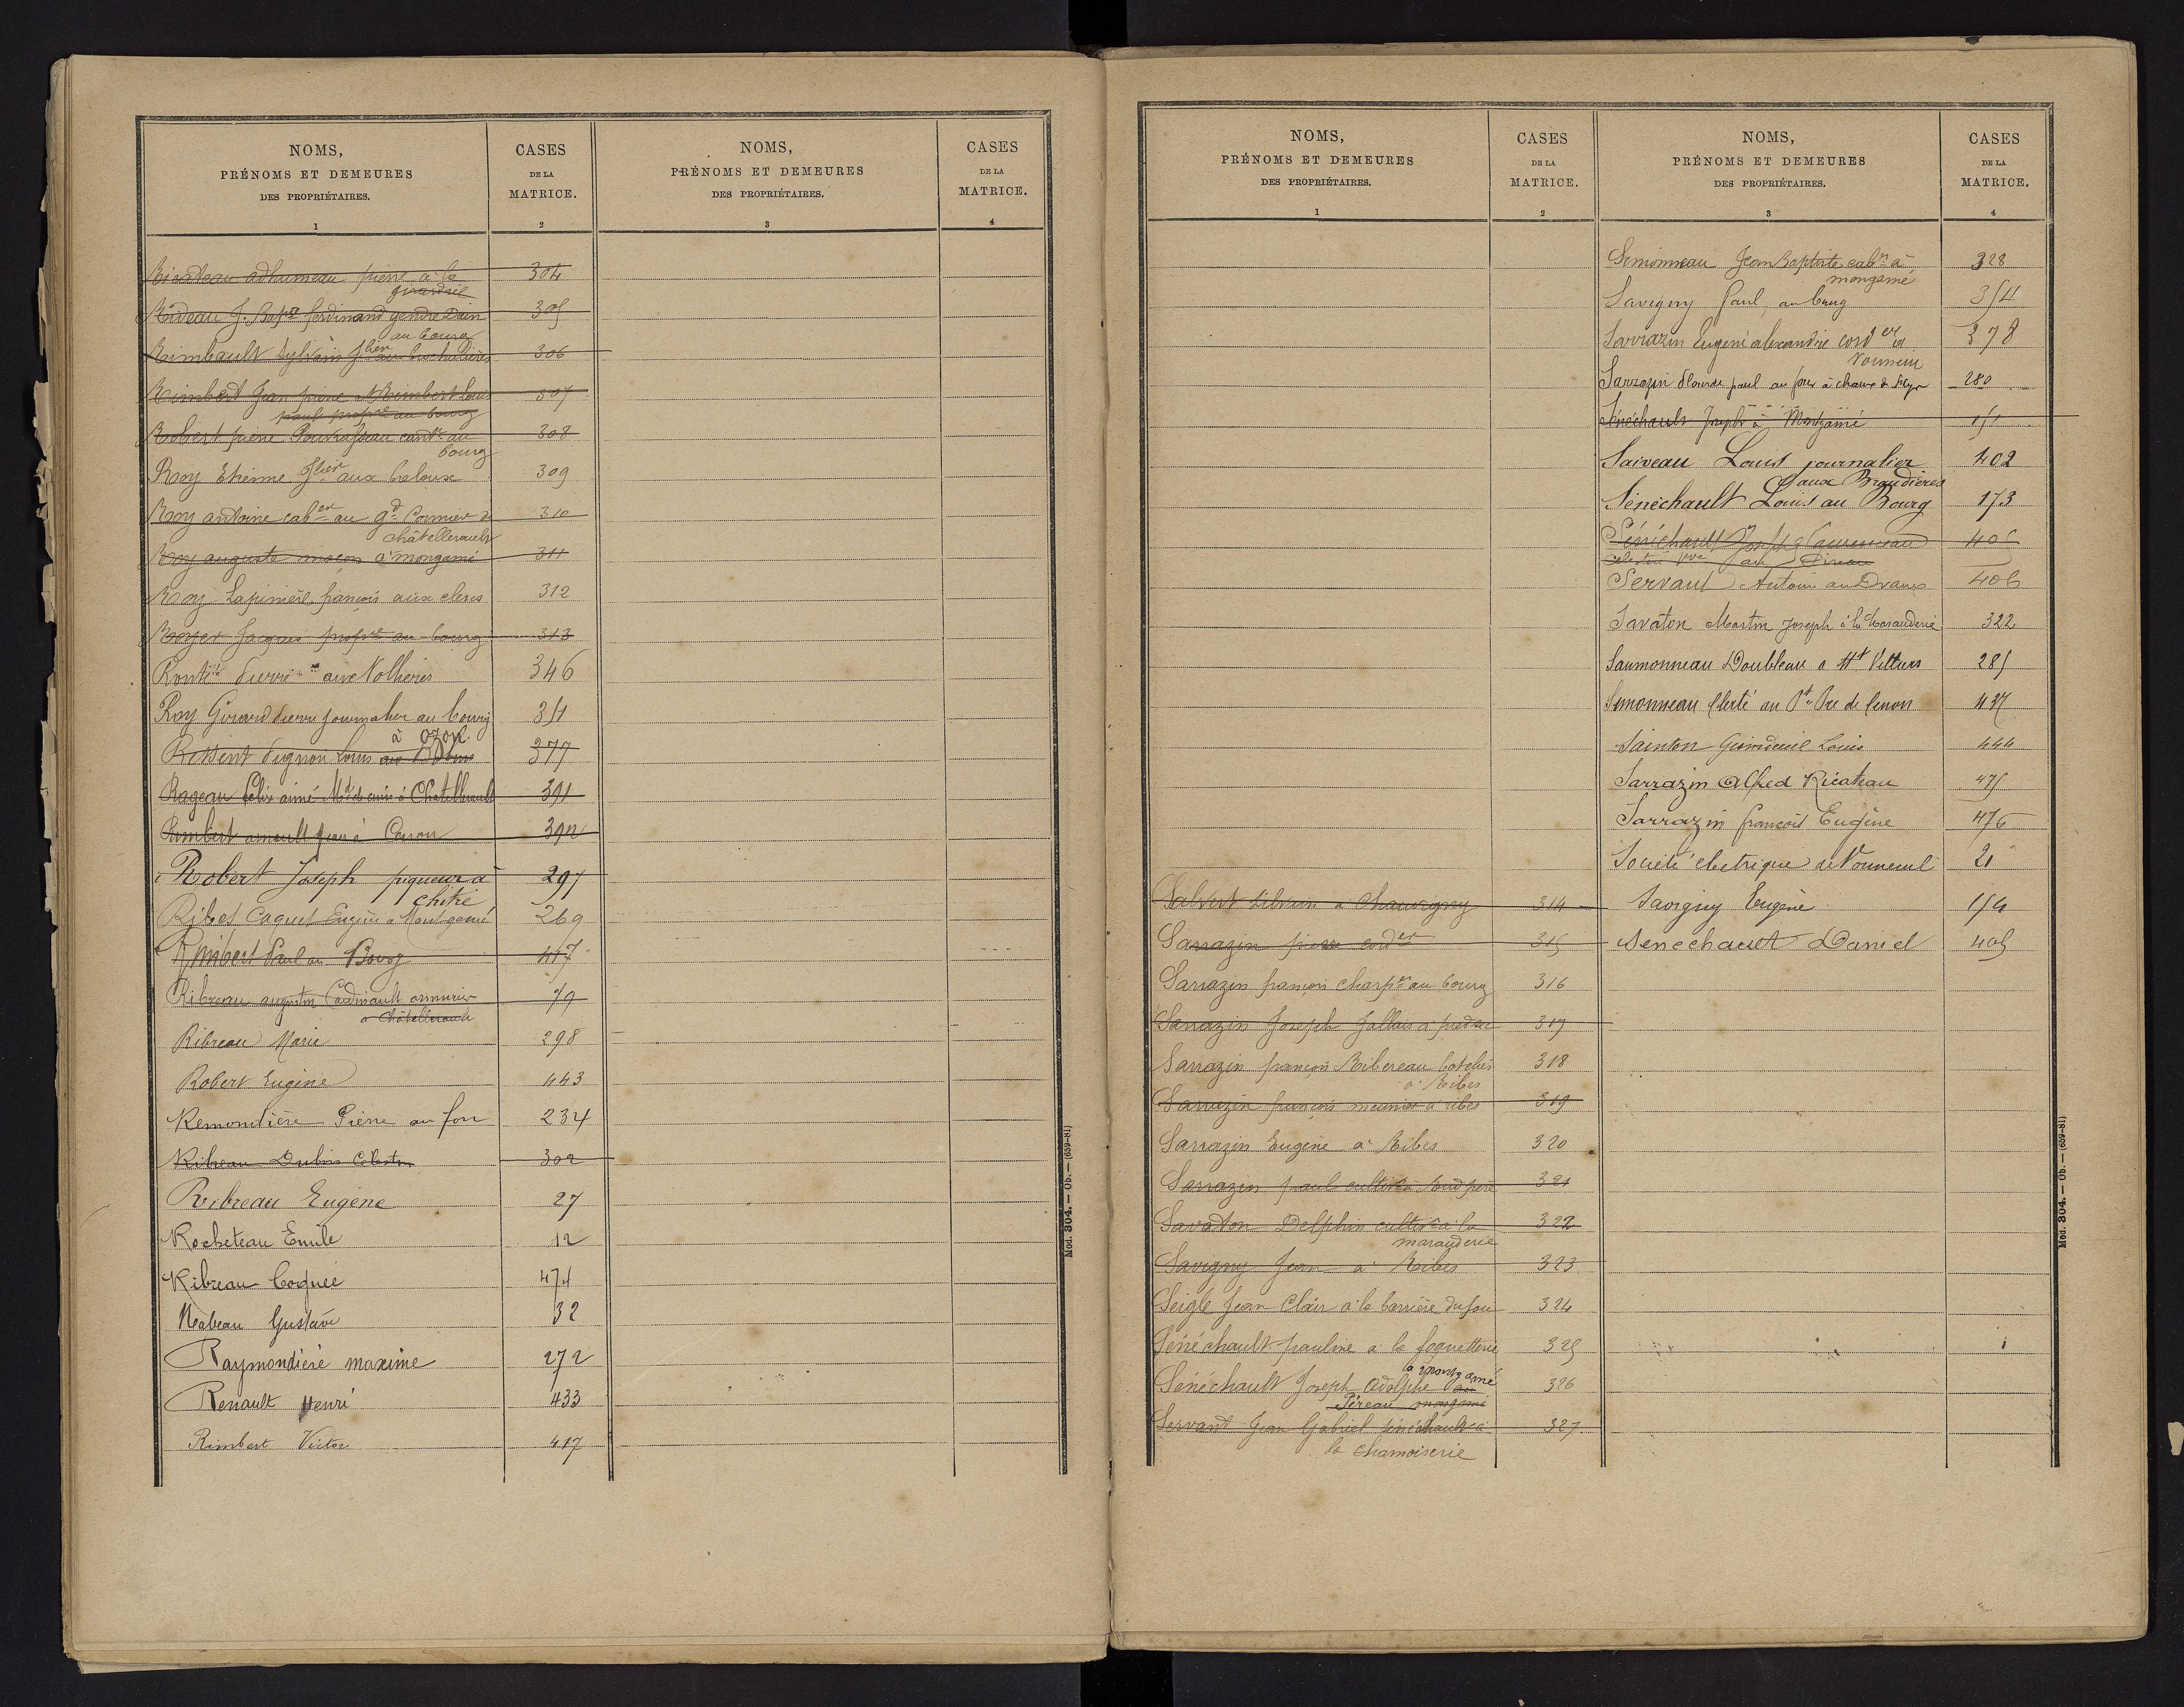 NOMS,
PRÉNOMS ET DEMEURES
DES PROPRIÉTAIRES.
1
CASES
DE LA
MATRICE.
2
NOMS,
PRÉNOMS ET DEMEURES
DES PROPRIÉTAIRES.
3
CASES
DE LA
MATRICE.
4
Ricateau adhumeau pierre à la 304
girardrie
Rideau J. Bapte ferdinand gendre Dain 305
au bourg
Rimbault Sylvain Jlier aux 306
Rimbert Jean pierre et Rimbert Louis 307
paul propre au bourg
Robert pierre cantr au 308
bourg
Roy Etienne Jlier aux beloux 309
Roy antoine caber au gd Cormier de 310
châtellerault
Roy auguste maçon à mongamé 311
Roy Lapinière françois aux cleres 312
Royer Jacques propre au bourg 313
Pierre aux Nollieres 346
Roy Girard Pierre journalier au bourg 351
à ozon
Ressent Pignon Louis aux 377
Rageau Félix aimé Md de cuirs à Chatellerault 391
Rimbert arnault Jean à Cenon 392
Robert Joseph piqueur à 297
chitré
Ribes Caquet Eugène a Montgamé 269
Rimbert Paul au Bourg 417
Ribreau augustin Cardinault armurier 79
a Châtellerault
Ribreau Marie 298
Robert Eugène 443
Remondière Pierre au fou 234
Ribreau Dubois Célestin 302
Ribreau Eugène 27
Rocheteau Emile 12
Ribreau Coquée 474
Rabeau Gustave 32
Raymondière maxime 272
Renault Henri 433
Rimbert Victor 417
Mod. 304. — Ob. — (659-81)
NOMS,
PRÉNOMS ET DEMEURES
DES PROPRIÉTAIRES.
1
CASES
DE LA
MATRICE.
2
Salvert Silvain a Chauvigny 314
Sarrazin pierre corder 315
Sarrazin françois charpr au bourg 316
Sarrazin Joseph Jallais à 317
Sarrazin françois Ribereau 318
à Ribes
Sarrazin françois meunier à ribes 319
Sarrazin Eugène à Ribes 320
Sarrazin paul cultivr à 321
Savaton Delphin cultivr à la 322
marauderie
Savigny Jean à Ribes 323
Seigle Jean Clair à la barrière du fou 324
Sénéchault pauline à la foquetterie 325
à mongamé
Sénéchault Joseph Adolphe au 326
Péreau mongamé
Servant Jean Gabriel sénéchault à 327
la chamoiserie
NOMS,
PRÉNOMS ET DEMEURES
DES PROPRIÉTAIRES.
3
CASES
DE LA
MATRICE.
4
Simonneau Jean Baptiste cabr à 328
mongamé
Savigny Paul au bourg 354
Sarrazin Eugène alexandre corder à 378
Vouneuil
Sarrazin paul au four à chaux de St Cyr 280
Sénéchault Joseph à Montgamé 151
Saiveau Louis journalier 402
aux Braudières
Sénéchault Louis au Bourg 173
Sénéchault Joseph 405
Célestin vve au Pireau
Servant Antoine au Dranes 406
Savaton Martin Joseph à la Marauderie 322
Saumonneau Doubleau a 285
Simonneau Clerté au de Cenon 427
Sainton Girardeuil Louis 444
Sarrazin Alfred Ricateau 475
Sarrazin françois Eugène 476
Société électrique de Vouneuil 21
Savigny Eugène 154
Senechault Daniel 405
Mod. 304. — Ob. — (659-81)